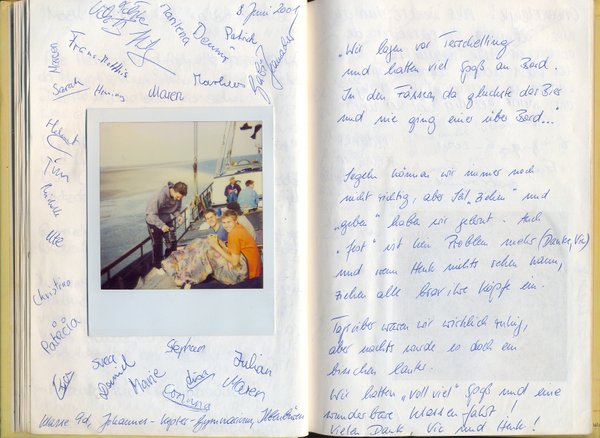 8. Juni 2001
Dennis
Patrick
Maren
Franz-Matthis
Sarah
Henning
Maren
Helmut
Sven
Ute
Christine
Patricia
Stephan
Svea
Daniel
Marie
Corinna
Julian
Maren
Klasse 9d, Johannes-Kepler-Gymnasium, Ibbenbüren
„Wir lagen vor Terschelling
und hatten viel Spaß an Bord.
In den Fässern da gluckste das Bier
und nie ging einer über Bord..."
Segeln können wir immer noch
nicht richtig, aber Seil „ziehen" und
„geben" haben wir gelernt. Auch
„fest" ist kein Problem mehr (Danke, Vic)
und wenn Henk nichts sehen kann,
ziehen alle brav ihre Köpfe ein.
Tagsüber waren wir wirklich ruhig,
aber nachts wurde es doch ein
bisschen lauter.
Wir hatten „voll viel" Spaß und eine
wunderbare Klassenfahrt!
Vielen Dank, Vic und Henk!